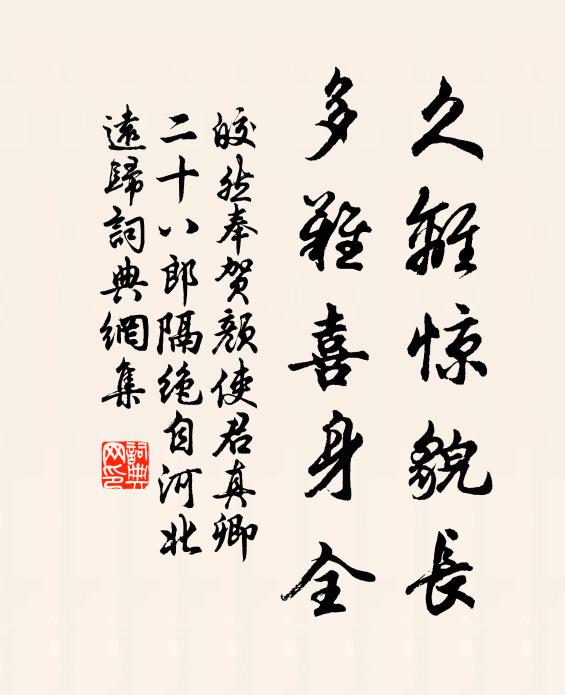 久離惊貌長
多難喜身全
皎然奉贺顔使君真卿
二十八郎隔绝自河北
遠歸詞典網集
詞典网印